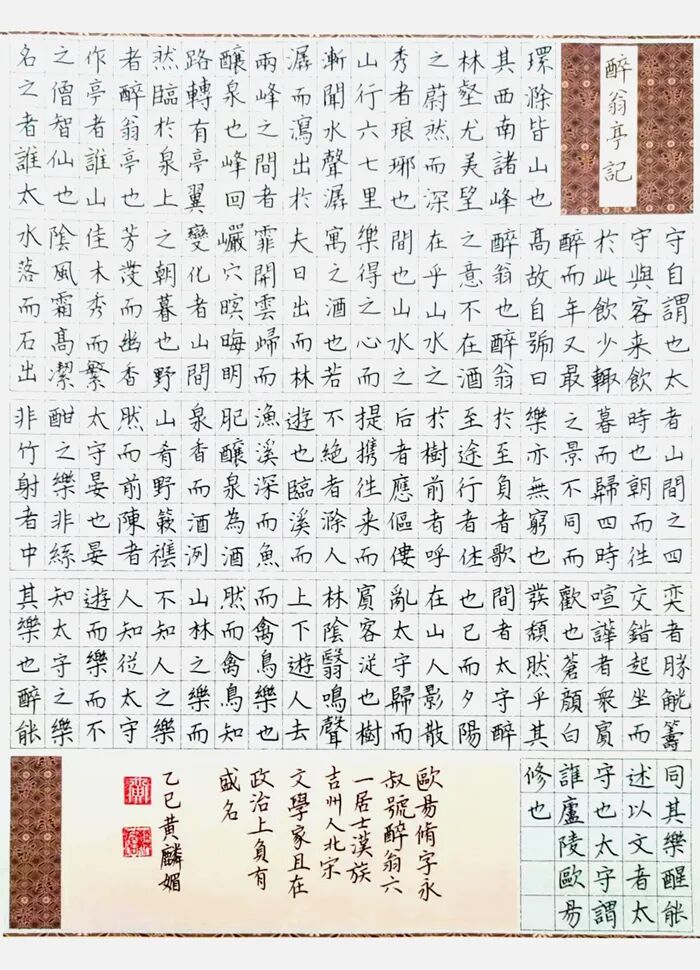 醉翁亭記
環滁皆山也
其西南諸峰
林壑尤美望
之蔚然而深
秀者琅琊也
山行六七里
漸聞水聲潺
潺而瀉出於
兩峰之間者
釀泉也峰回
路轉有亭翼
然臨於泉上
者醉翁亭也
作亭者誰山
之僧智仙也
名之者誰太
守自謂也太
守與客来飲
於此飲少輒
醉而年又最
高故自號曰
醉翁也醉翁
之意不在酒
在乎山水之
間也山水之
樂得之心而
寓之酒也若
夫日出而林
霏開雲歸而
巖穴暝晦明
變化者山間
之朝暮也野
芳發而幽香
佳木秀而繁
陰風霜高潔
水落而石出
者山間之四
時也朝而徃
暮而歸四時
之景不同而
樂亦無窮也
於至負者歌
至途行者休
於樹前者呼
后者應傴僂
提携徃来而
不絕者滁人
遊也臨溪而
漁溪深而魚
肥釀泉為酒
泉香而酒洌
山肴野蔌襍
然而前陳者
太守宴也宴
酣之樂非絲
非竹射者中
奕者勝觥籌
交錯起坐而
喧譁者衆賓
歡也蒼顔白
發頹然乎其
間者太守醉
也已而夕陽
在山人影散
亂太守歸而
賓客從也樹
林陰翳鳴聲
上下遊人去
而禽鳥樂也
然而禽鳥知
山林之樂而
不知人之樂
人知從太守
遊而樂而不
知太守之樂
其樂也醉能
同其樂醒能
述以文者太
守也太守謂
誰廬陵歐昜
修也
歐昜脩字永
叔號醉翁六
一居士漢族
吉州人北宋
文學家且在
政治上負有
盛名
乙巳黃麟媚